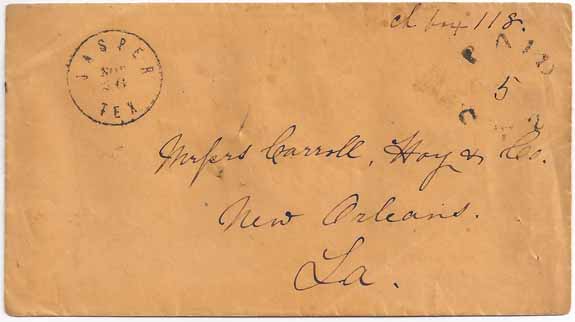 ch box 118.
JASPER
NOV
26
TEX
PAID
5
Messrs Carroll, Hoy & Co.
New Orleans.
La.